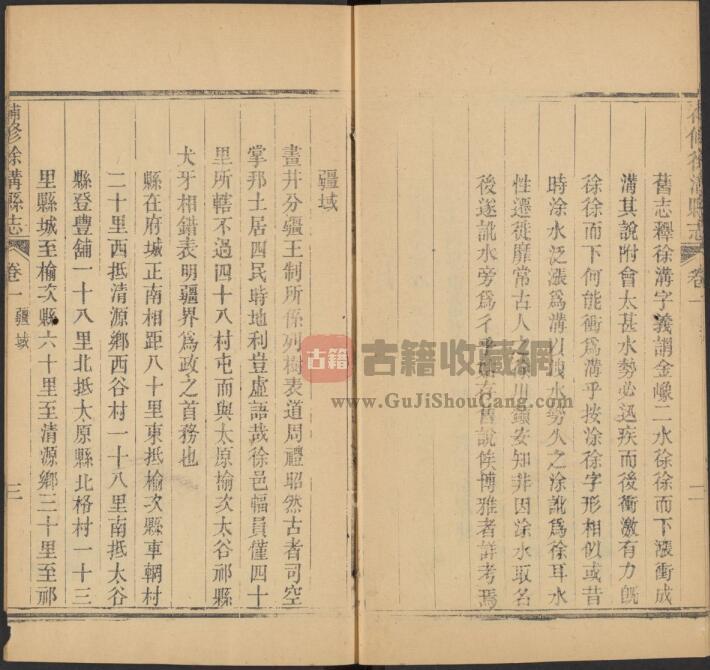 舊志釋徐溝字義謂金嶑二水徐徐而下漲衝成
溝其說附會太甚水勢必迅疾而後衝激有力旣
徐徐而下何能衝爲溝乎按涂徐字形相似或昔
時涂水泛漲爲溝以洩水勢久之涂訛爲徐耳水
性遷徙靡常古人
川
安知非因涂水取名
後遂訛水旁爲彳
存舊說候博雅者詳考焉
補修徐溝縣志
卷一
二
疆域
畫井分疆王制所係列樹表道周禮昭然古者司空
掌邦土居四民時地利豈虛語哉徐邑幅員僅四十
里所轄不過四十八村屯而與太原榆次太谷祁縣
犬牙相錯表明疆界爲政之首務也
縣在府城正南相距八十里東抵榆次縣車輞村
二十里西抵清源鄉西谷村一十八里南抵太谷
縣登豐舖一十八里北抵太原縣北格村一十三
里縣城至榆次縣六十里至清源鄉二十里至祁
補修徐溝縣志
卷一
疆域
三
古籍
古籍收藏網
www.GuJiShouCang.com